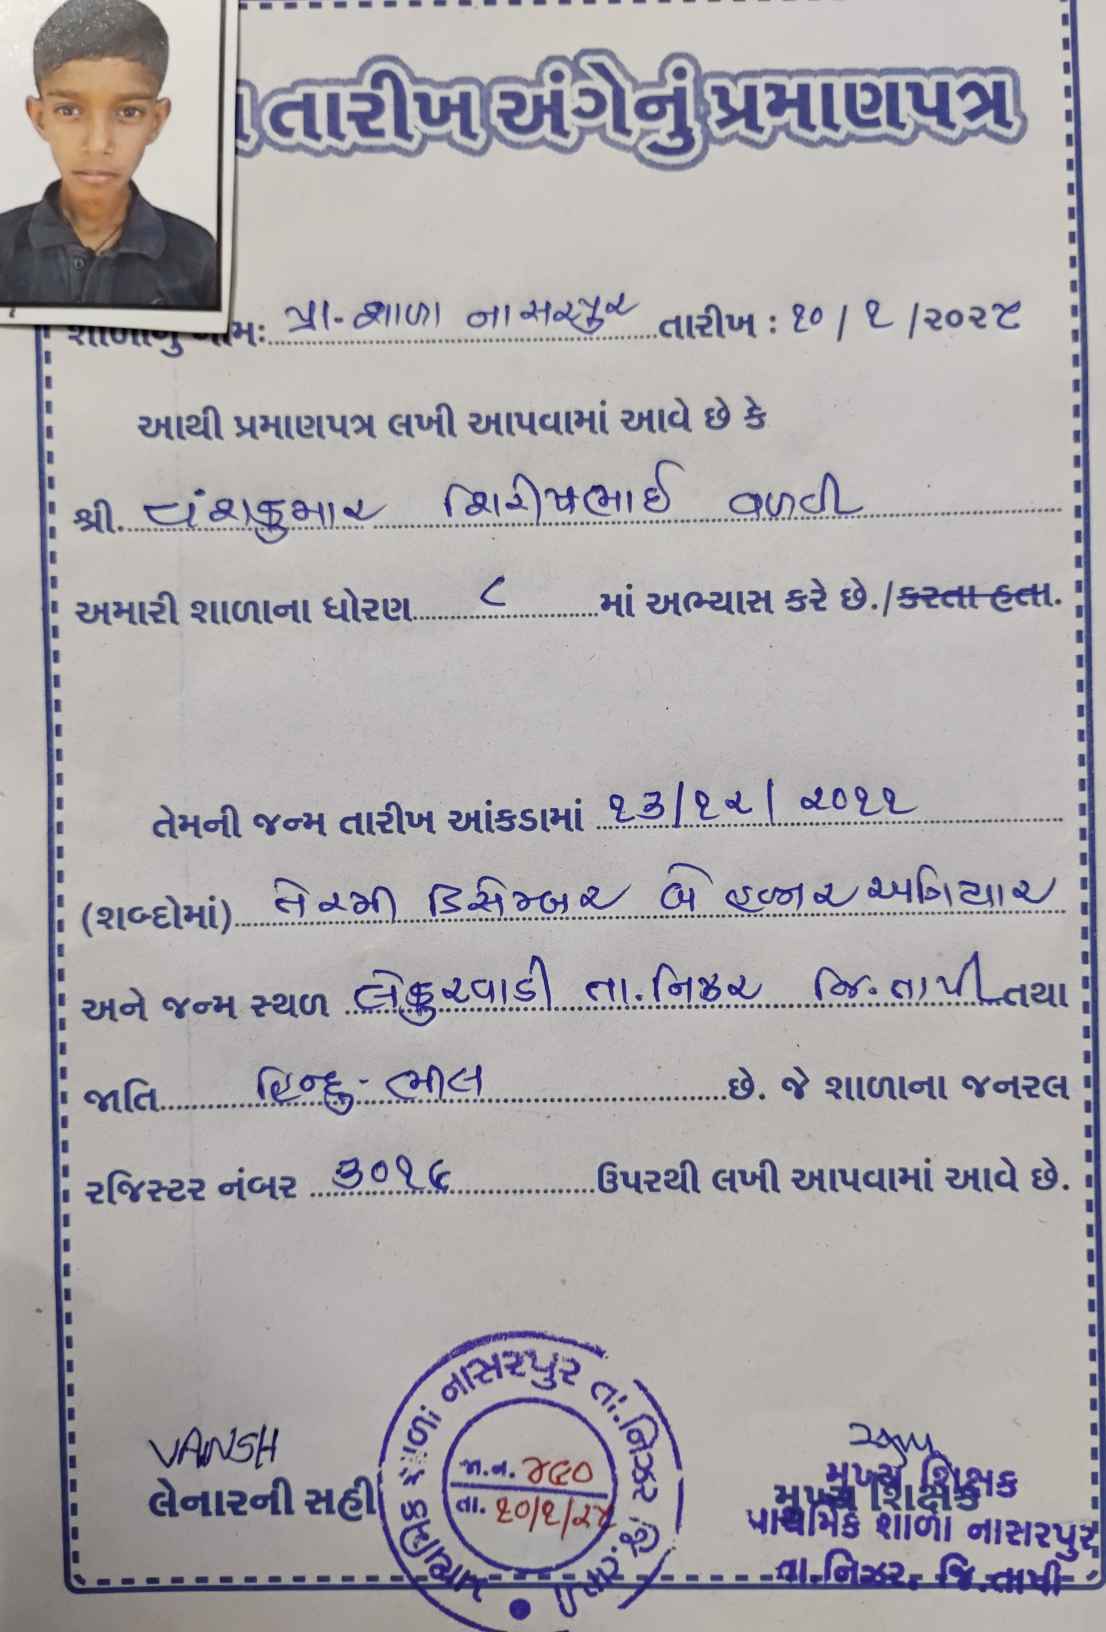 તારીખ અંગેનું પ્રમાણપત્ર
શાળાનું નામઃ પ્રા-શાળા નાસરપુર તારીખ : ૧૦ / ૧ /૨૦૨૪
આથી પ્રમાણપત્ર લખી આપવામાં આવે છે કે
શ્રી. વંશકુમાર શિરીષભાઈ વળવી
અમારી શાળાના ધોરણ ૮ માં અભ્યાસ કરે છે./કરતા હતા.
તેમની જન્મ તારીખ આંકડામાં ૧૩/૧૨/ ૨૦૧૧
(શબ્દોમાં) તેરમી ડિસેમ્બર બે હજાર અગિયાર
અને જન્મ સ્થળ લેકુરવાડી તા.નિઝર જિ.તાપી તથા
જાતિ હિન્દુ-ભીલ છે. જે શાળાના જનરલ
રજિસ્ટર નંબર ૩૦૧૬ ઉપરથી લખી આપવામાં આવે છે.
VANSH
લેનારની સહી
પ્રાથમિક શાળા નાસરપુર તા.નિઝર જિ.તાપી
જા.ન. ૪૯૦
તા. ૧૦/૧/૨૪
મુખ્ય શિક્ષક
મુખ્ય શિક્ષક
પ્રાથમિક શાળા નાસરપુર
તા.નિઝર, જિ.તાપી